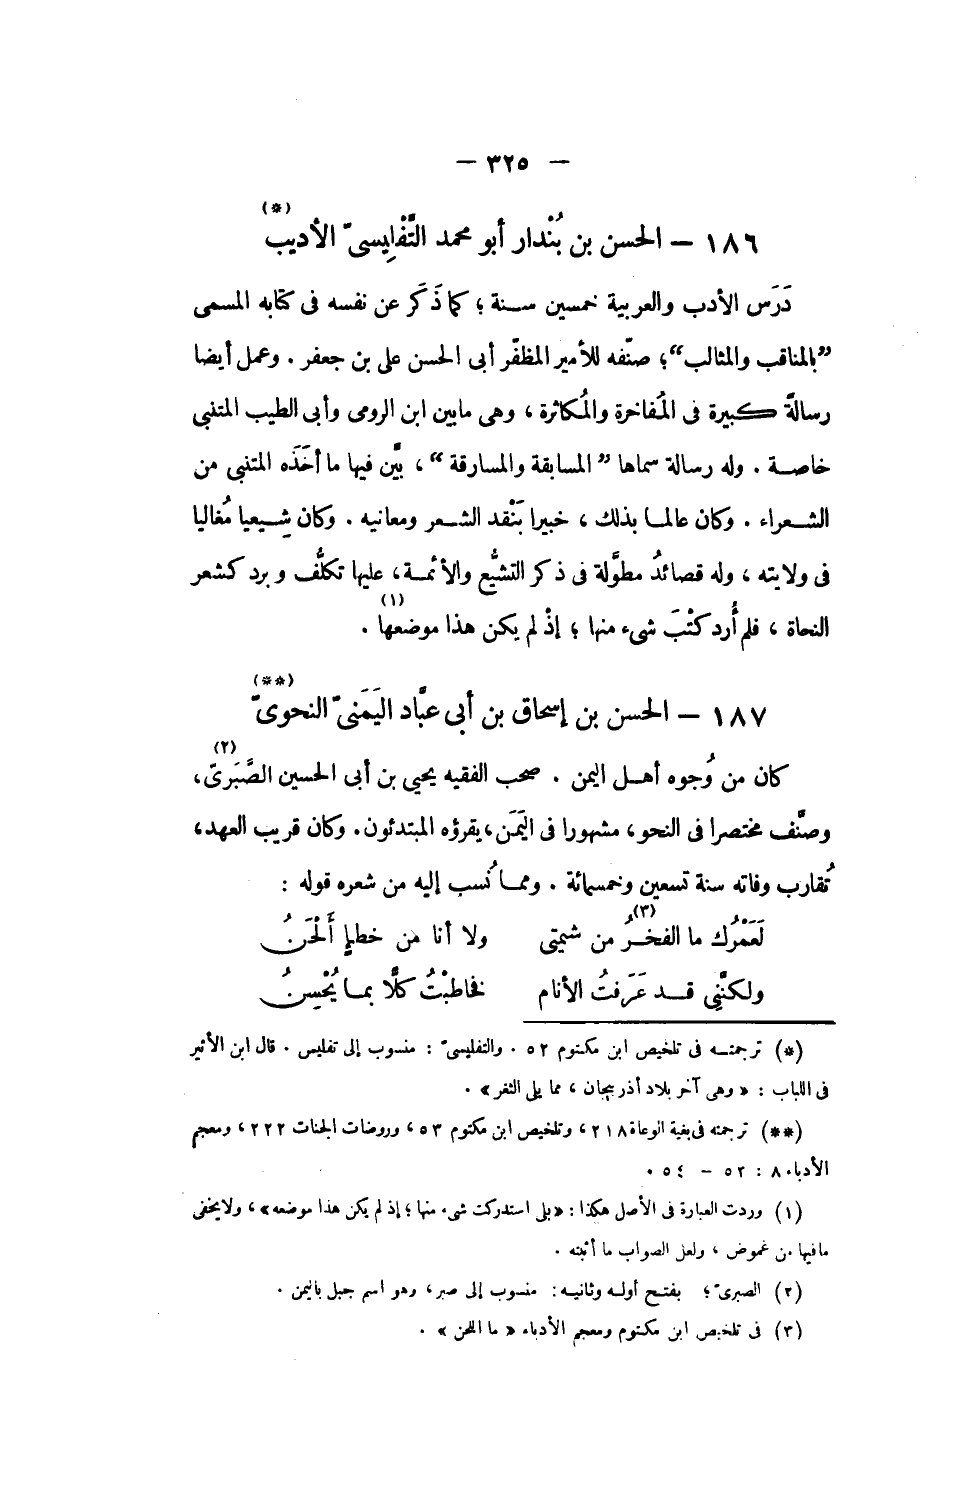 — ٣٢٥ —
١٨٦ — الحسن بن بُنْدار أبو محمد التَّفْلِيسىّ الأديب (*)
دَرَس الأدب والعربية خمسين سنة ؛ كما ذَكَر عن نفسه فى كتابه المسمى
”بالمناقب والمثالب“؛ صنّفه للأمير المظفّر أبى الحسن على بن جعفر . وعمل أيضا
رسالةً كبيرة فى المُفاخرة والمُكاثرة ، وهى مابين ابن الرومى وأبى الطيب المتنبى
خاصة . وله رسالة سماها ” المسابقة والمسارقة “ ، بيَّن فيها ما أخَذَه المتنبى من
الشعراء . وكان عالما بذلك ، خبيرا بَنْقد الشعر ومعانيه . وكان شِيعيا مُغاليا
فى ولايته ، وله قصائدُ مطوَّلة فى ذكر التشيُّع والأئمة، عليها تكلُّف وبرد كشعر
النحاة ، فلم أُرد كَتْبَ شىء منها ؛ إذْ لم يكن هذا موضعها (١) .
١٨٧ — الحسن بن إسحاق بن أبي عبَّاد اليَمَنىّ النحوىّ (**)
كان من وُجوه أهل اليمن . صحب الفقيه يحيى بن أبى الحسين الصَّبَرىّ (٢)،
وصنَّف مختصرا فى النحو، مشهورا فى اليَمَن، يقرؤه المبتدئون. وكان قريب العهد،
تُقارب وفاته سنة تسعين وخمسمائة . ومما نُسب إليه من شعره قوله :
لَعَمْرُك ما الفخرُ (٣) من شيمتى ولا أنا من خطإ أَلْحَنُ
ولكنَّنِي قد عَرَفتُ الأنام فخاطبْتُ كلًّا بما يُحْسِنُ
(*) ترجمته فى تلخيص ابن مكتوم ٥٢ . والتفليسىّ : منسوب إلى تفليس . قال ابن الأثير
فى اللباب : « وهى آخر بلاد أذربيجان ، مما يلى الثغر » .
(**) ترجمته فى بغية الوعاة ٢١٨ ، وتلخيص ابن مكتوم ٥٣ ، وروضات الجنات ٢٢٢ ، ومعجم
الأدباء ٨ : ٥٢ — ٥٤ .
(١) وردت العبارة فى الأصل هكذا : «بلى استدركت شىء منها ؛ إذ لم يكن هذا موضعه» ، ولايخفى
مافيها من غموض ، ولعل الصواب ما أثبته .
(٢) الصبرىّ ؛ بفتح أوله وثانيه : منسوب إلى صبر، وهو اسم جبل باليمن .
(٣) فى تلخيص ابن مكتوم ومعجم الأدباء « ما اللحن » .